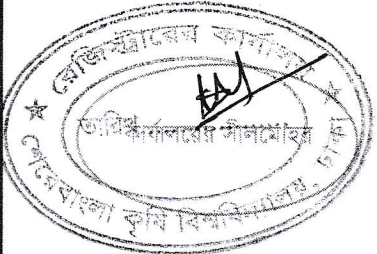 রেজিস্ট্রারের কার্যালয়
তারিখ
কার্যালয়ের সীলমোহর
শেরেবাংলা কৃষি বিশ্ববিদ্যালয়, ঢাকা